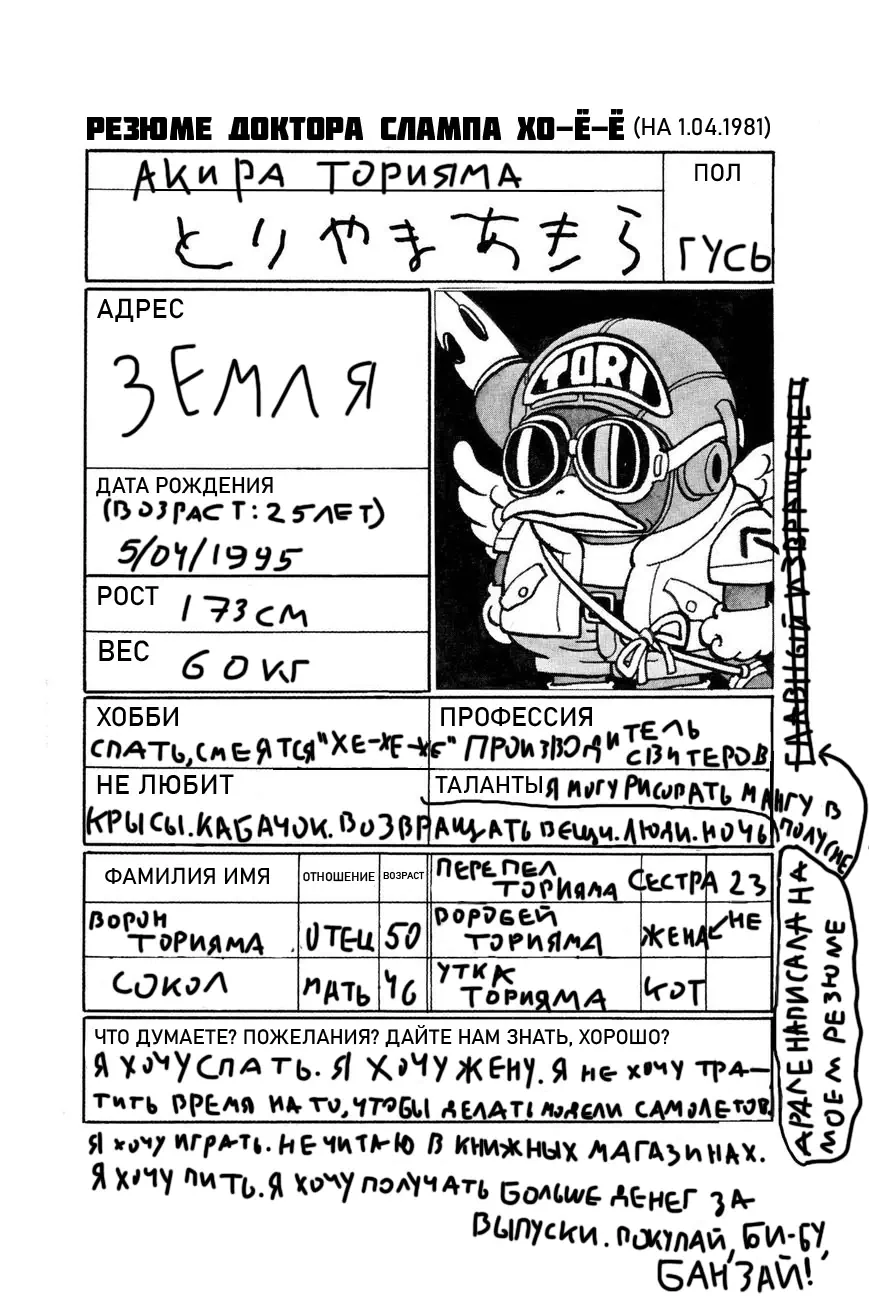 РЕЗЮМЕ ДОКТОРА СЛАМПА ХО-Ё-Ё (НА 1.04.1981)
АКИРА ТОРИЯМА
とりやまあきら
ПОЛ
ГУСЬ
АДРЕС
ЗЕМЛЯ
TORI
ДАТА РОЖДЕНИЯ
(ВОЗРАСТ: 25 ЛЕТ)
5/04/1995
РОСТ 173 СМ
ВЕС 60 КГ
ГЛАВНЫЙ ИЗВРАЩЕНЕЦ
ХОББИ
СПАТЬ, СМЕЯТСЯ "ХЕ-ХЕ-ХЕ"
ПРОФЕССИЯ
ПРОИЗВОДИТЕЛЬ
СВИТЕРОВ
НЕ ЛЮБИТ
КРЫСЫ. КАБАЧОК. ВОЗВРАЩАТЬ ВЕЩИ. ЛЮДИ. НОЧЬ
ТАЛАНТЫ Я МОГУ РИСОВАТЬ МАНГУ В
ПОЛУСНЕ
ФАМИЛИЯ ИМЯ ОТНОШЕНИЕ ВОЗРАСТ
ВОРОН
ТОРИЯМА ОТЕЦ 50
СОКОЛ МАТЬ 46
ПЕРЕПЕЛ
ТОРИЯМА СЕСТРА 23
ВОРОБЕЙ
ТОРИЯМА ЖЕНА НЕ
УТКА
ТОРИЯМА КОТ
АРАЛЕ НАПИСАЛА НА
МОЕМ РЕЗЮМЕ
ЧТО ДУМАЕТЕ? ПОЖЕЛАНИЯ? ДАЙТЕ НАМ ЗНАТЬ, ХОРОШО?
Я ХОЧУ СПАТЬ. Я ХОЧУ ЖЕНУ. Я НЕ ХОЧУ ТРА-
ТИТЬ ВРЕМЯ НА ТО, ЧТОБЫ ДЕЛАТЬ МОДЕЛИ САМОЛЕТОВ.
Я ХОЧУ ИГРАТЬ. НЕ ЧИТАЮ В КНИЖНЫХ МАГАЗИНАХ.
Я ХОЧУ ПИТЬ. Я ХОЧУ ПОЛУЧАТЬ БОЛЬШЕ ДЕНЕГ ЗА
ВЫПУСКИ. ПОКУПАЙ, БИ-БУ,
БАНЗАЙ!